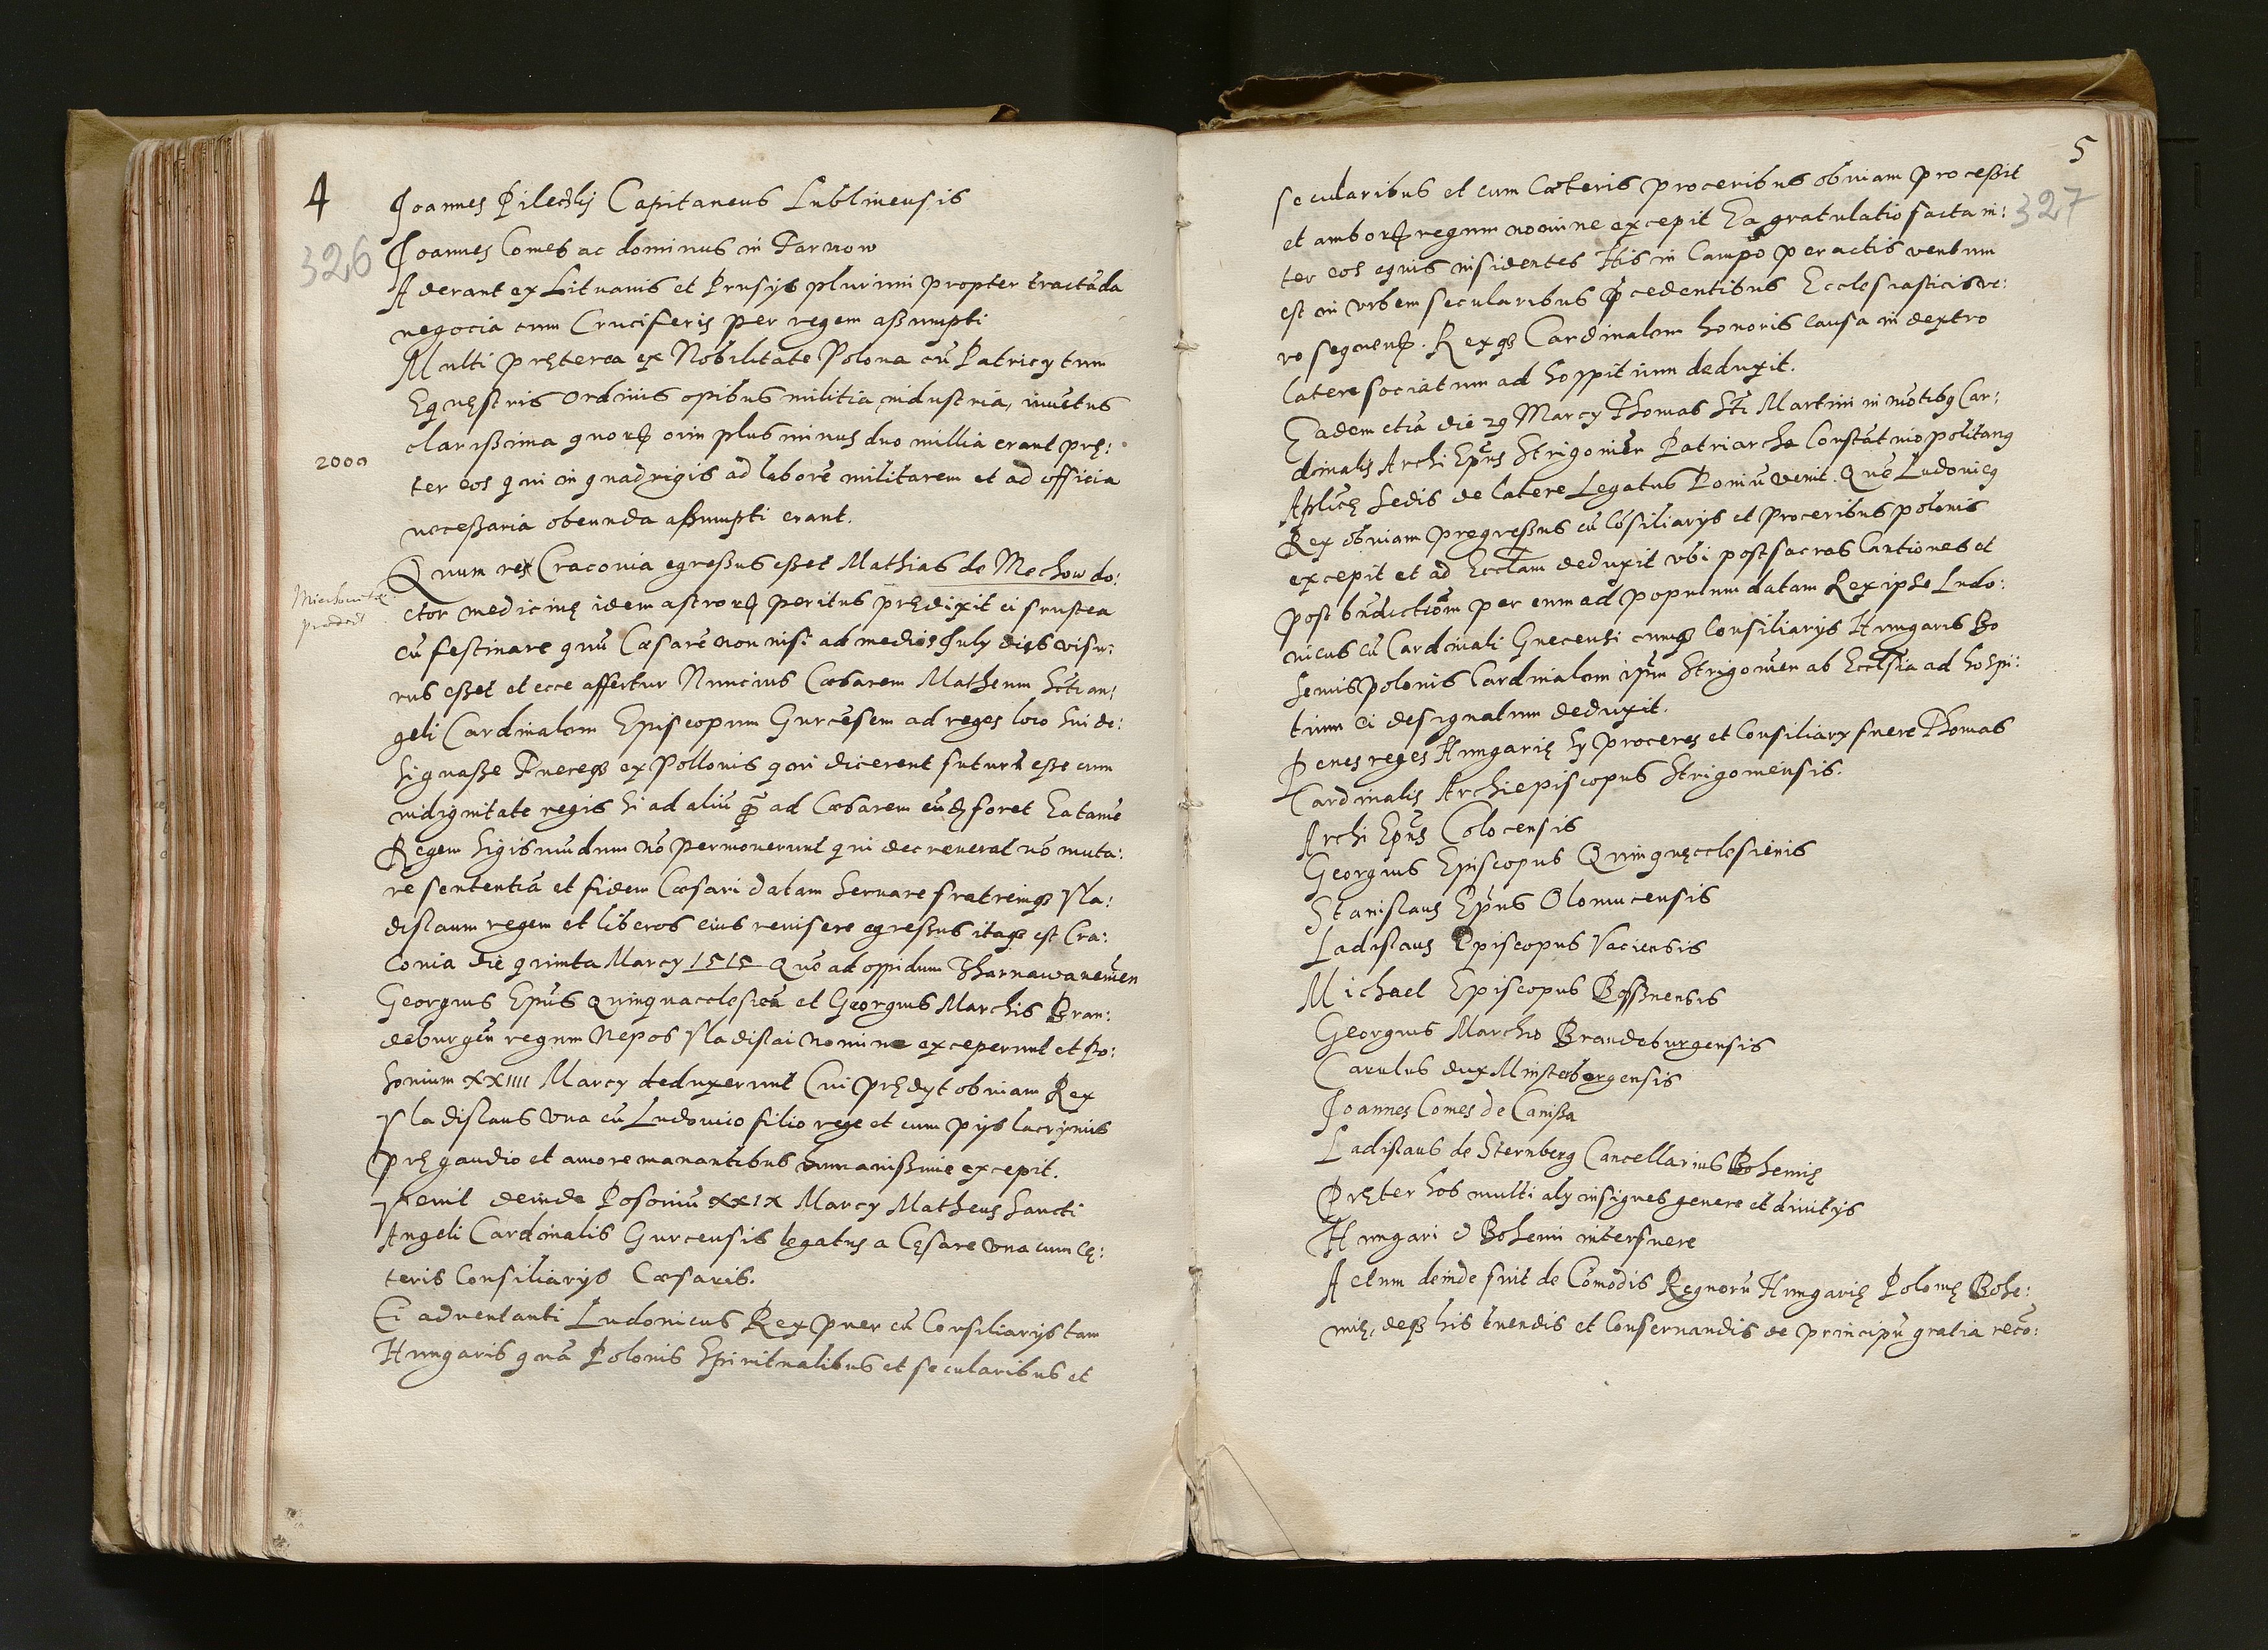 4
326
Joannes Pileczkij Capitaneus Lublinensis
Joannes Comes ac dominus in Tarnow
Aderant ex Lituanis et Prusijs plurimi propter tractãda
negocia cum Cruciferis per regem aßumpti
Multi pręterea ex Nobilitate Polona cũ Patricij tum
Equęstris Ordinis opibus militia industria, iuuetus
clarißima quorꝝ oim plus minus duo millia erant prę:
2000
ter eos qui in quadrigis ad laborẽ militarem et ad officia
necessaria obeunda aßumpti erant.
Quum rex Craconia egreßus eßet Mathias de Mechow do:
Miechouita predixit
ctor medicinę idem astrorꝝ peritus prędixit ei frustra
eũ festinare quũ Cæsarẽ non nisi ad medios Julij dies visu:
rus eßet et ecce affertur Nuncius Cæsarem Matheum Scti an:
geli Cardinalem Episcopum Gurcẽsem ad reges loco sui de:
signaße Fuereqȝ ex Pollonis qui dicerent futurũ eße cum
indignitate regis si ad aliũ ꝗ̃ ad Cæsarem eũdꝫ foret Ea tamẽ
Regem Sigismũdum nõ permouerunt qui decreuerat nõ muta:
re sententiã et fidem Cæsari datam seruare fratremqȝ Vla:
dislaum regem et liberos eius reuisere egreßus itaqȝ est Cra:
conia die quinta Marcij 1515 Quẽ ad oppidum Tharnawanemẽn
Georgius Epũs Quinquacclesieñ et Georgius Marchis Bran:
deburgeñ regum Nepos Vladislai nomine exceperunt et Po:
sonium XXIIII Marcij deduxerunt Cui prędijt obuiam Rex
Vladislaus vna cũ Ludouico filio rege et cum pijs lacrymis
prę gaudio et amore manantibus humanißimie excepit.
Venit deinde Posoniũ XXIX Marcij Matheus Sancti
Angeli Cardinalis Gurcensis legatus a Cęsare vna cum cę:
teris Consiliarijs Cæsaris.
Ei aduentanti Ludouicus Rex puer cũ Consiliarijs tam
Hungaris quã Polonis Spiritualibus et secularibus et
5
327
secularibus et cum Cæteris proceribus obuiam proceßit
et amborꝝ regum nomine excepit Ea gratulatio facta in:
ter eos equis insidentes His in Campo peractis ventum
est in vrbem secularibus p̃cedentibus Ecclesiasticis ve:
ro sequentꝫ. Rexqȝ Cardinalem honoris causa in dextro
latere sociatum ad hospitium deduxit.
Eadem etiã die 29 Marcij Thomas Sti Martini in mõtibꝯ Car:
dinalis Archi Epũs Strigonieñ Patriarcha Constãtinopolitanꝯ
Aplicę Sedis de latere Legatus Poniũ venit. Quẽ Ludouicꝯ
Rex obuiam progreßus cũ Cõsiliarijs et proceribus polonis
excepit et ad Eccłam deduxit vbi post sacras Cantiones et
post bñdictiõm per eum ad populum datam Rex ipse Ludo:
uicus cũ Cardinali Gurcensi cumqȝ Consiliarijs Hungaris Bo
hemis polonis Cardinalem ipm̃ Strigonieñ ab Ecclsia ad hospi:
tium ei designatum deduxit.
Penes reges Hungarię hij proceres et Consiliarij fuere Thomas
Cardinalis Archiepiscopus Strigoniẽsis.
Archi Epũs Colocensis
Georgius Episcopus Quinquęcclesiẽsis
Stanislaus Epũs Olomucensis
Ladislaus Episcopus Vaciensis
Michael Episcopus Boßnensis
Georgius Marchio Brandeburgensis
Carulus dux Minsterbergensis
Joannes Comes de Canißa
Ladislaus de Sternberg Cancellarius Bohemię
Pręter hos multi alij insignes genere et diuitijs
Hungari & Bohemi interfuere
Actum deinde fuit de Cõmodis Regnorũ Hungarię Polonię Bohe:
mię, deqȝ his tuendis et Conseruandis de principũ gratia recõ: